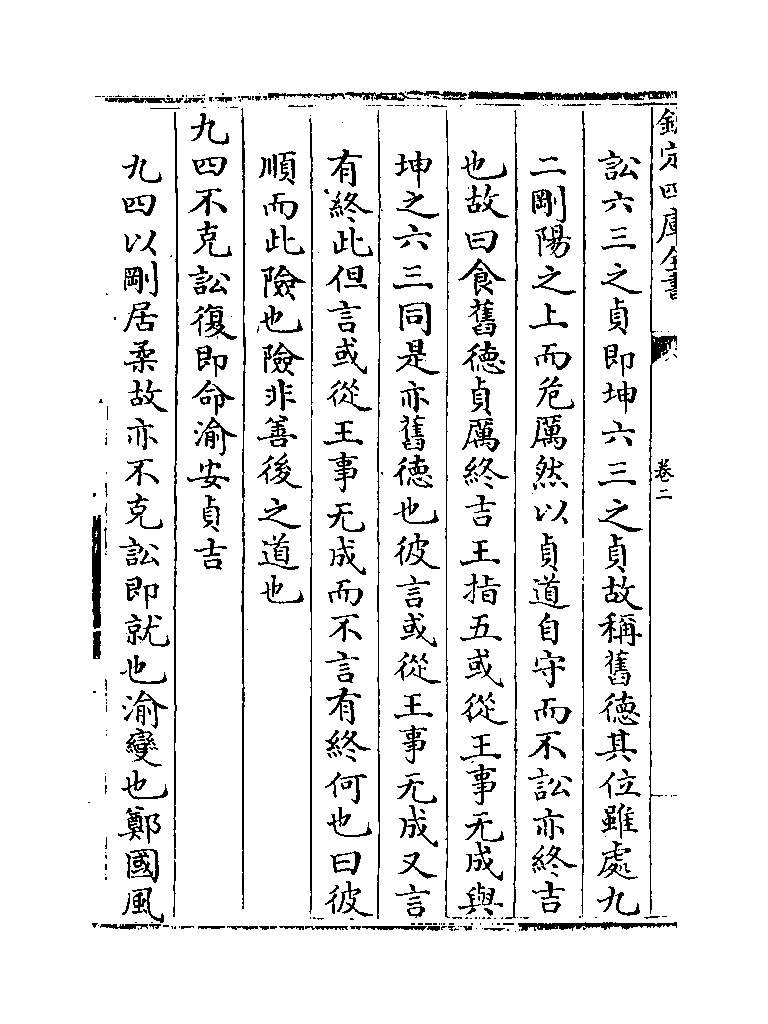 欽定四庫全書
卷二
訟六三之貞即坤六三之貞故稱舊德其位雖處九
二剛陽之上而危厲然以貞道自守而不訟亦終吉
也故曰食舊德貞厲終吉王指五或從王事无成與
坤之六三同是亦舊德也彼言或從王事无成又言
有終此但言或從王事无成而不言有終何也曰彼
順而此險也險非善後之道也
九四不克訟復即命渝安貞吉
九四以剛居柔故亦不克訟即就也渝變也鄭國風